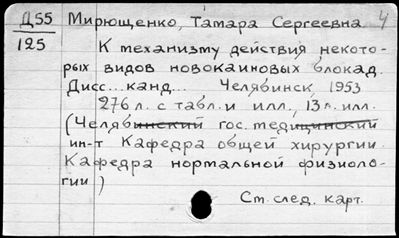 Д55 Мирющенко, Тамара Сергеевна 4
125
К механизму действия некото-
рых видов новокаиновых блокад.
Дисс... канд... Челябинск, 1953
276 л. с табл. и илл., 13 л. илл.
(Челябинский гос. медицинский
ин-т Кафедра общей хирургии.
Кафедра нормальной физиоло-
гии)
См. след. карт.